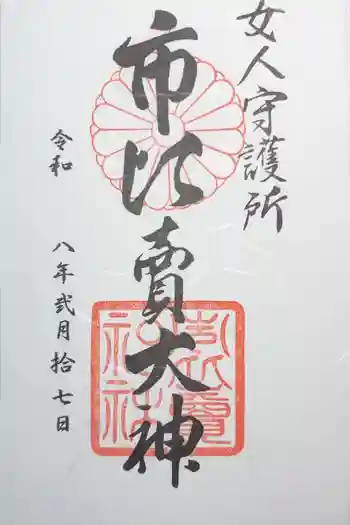 女人守護所
市比賣大神
令和 八年弐月拾七日